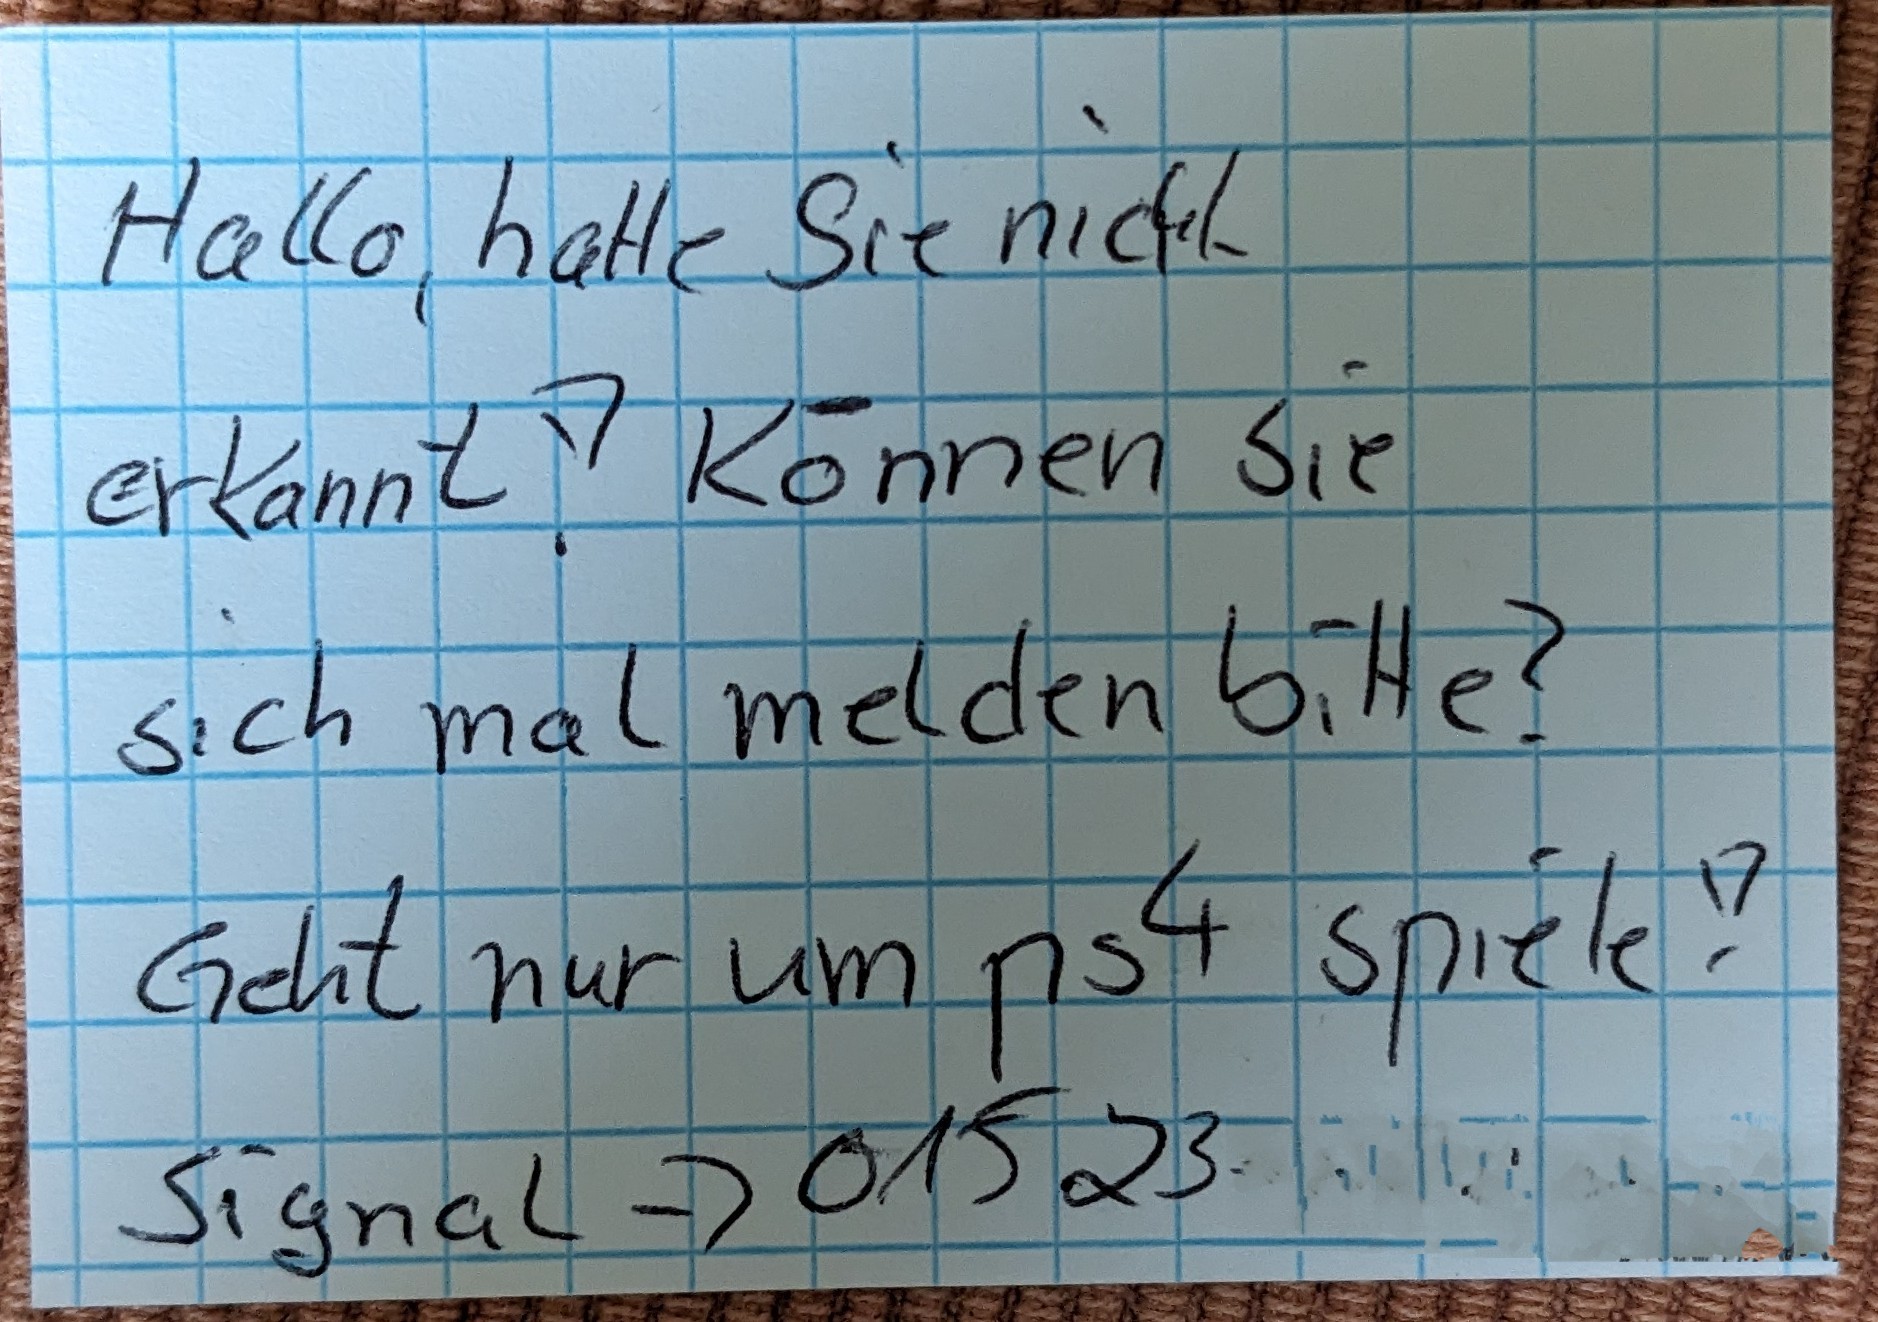 Hallo, hatte Sie nicht
erkannt? Können Sie
sich mal melden bitte?
Geht nur um ps4 spiele?
Signal → 01523